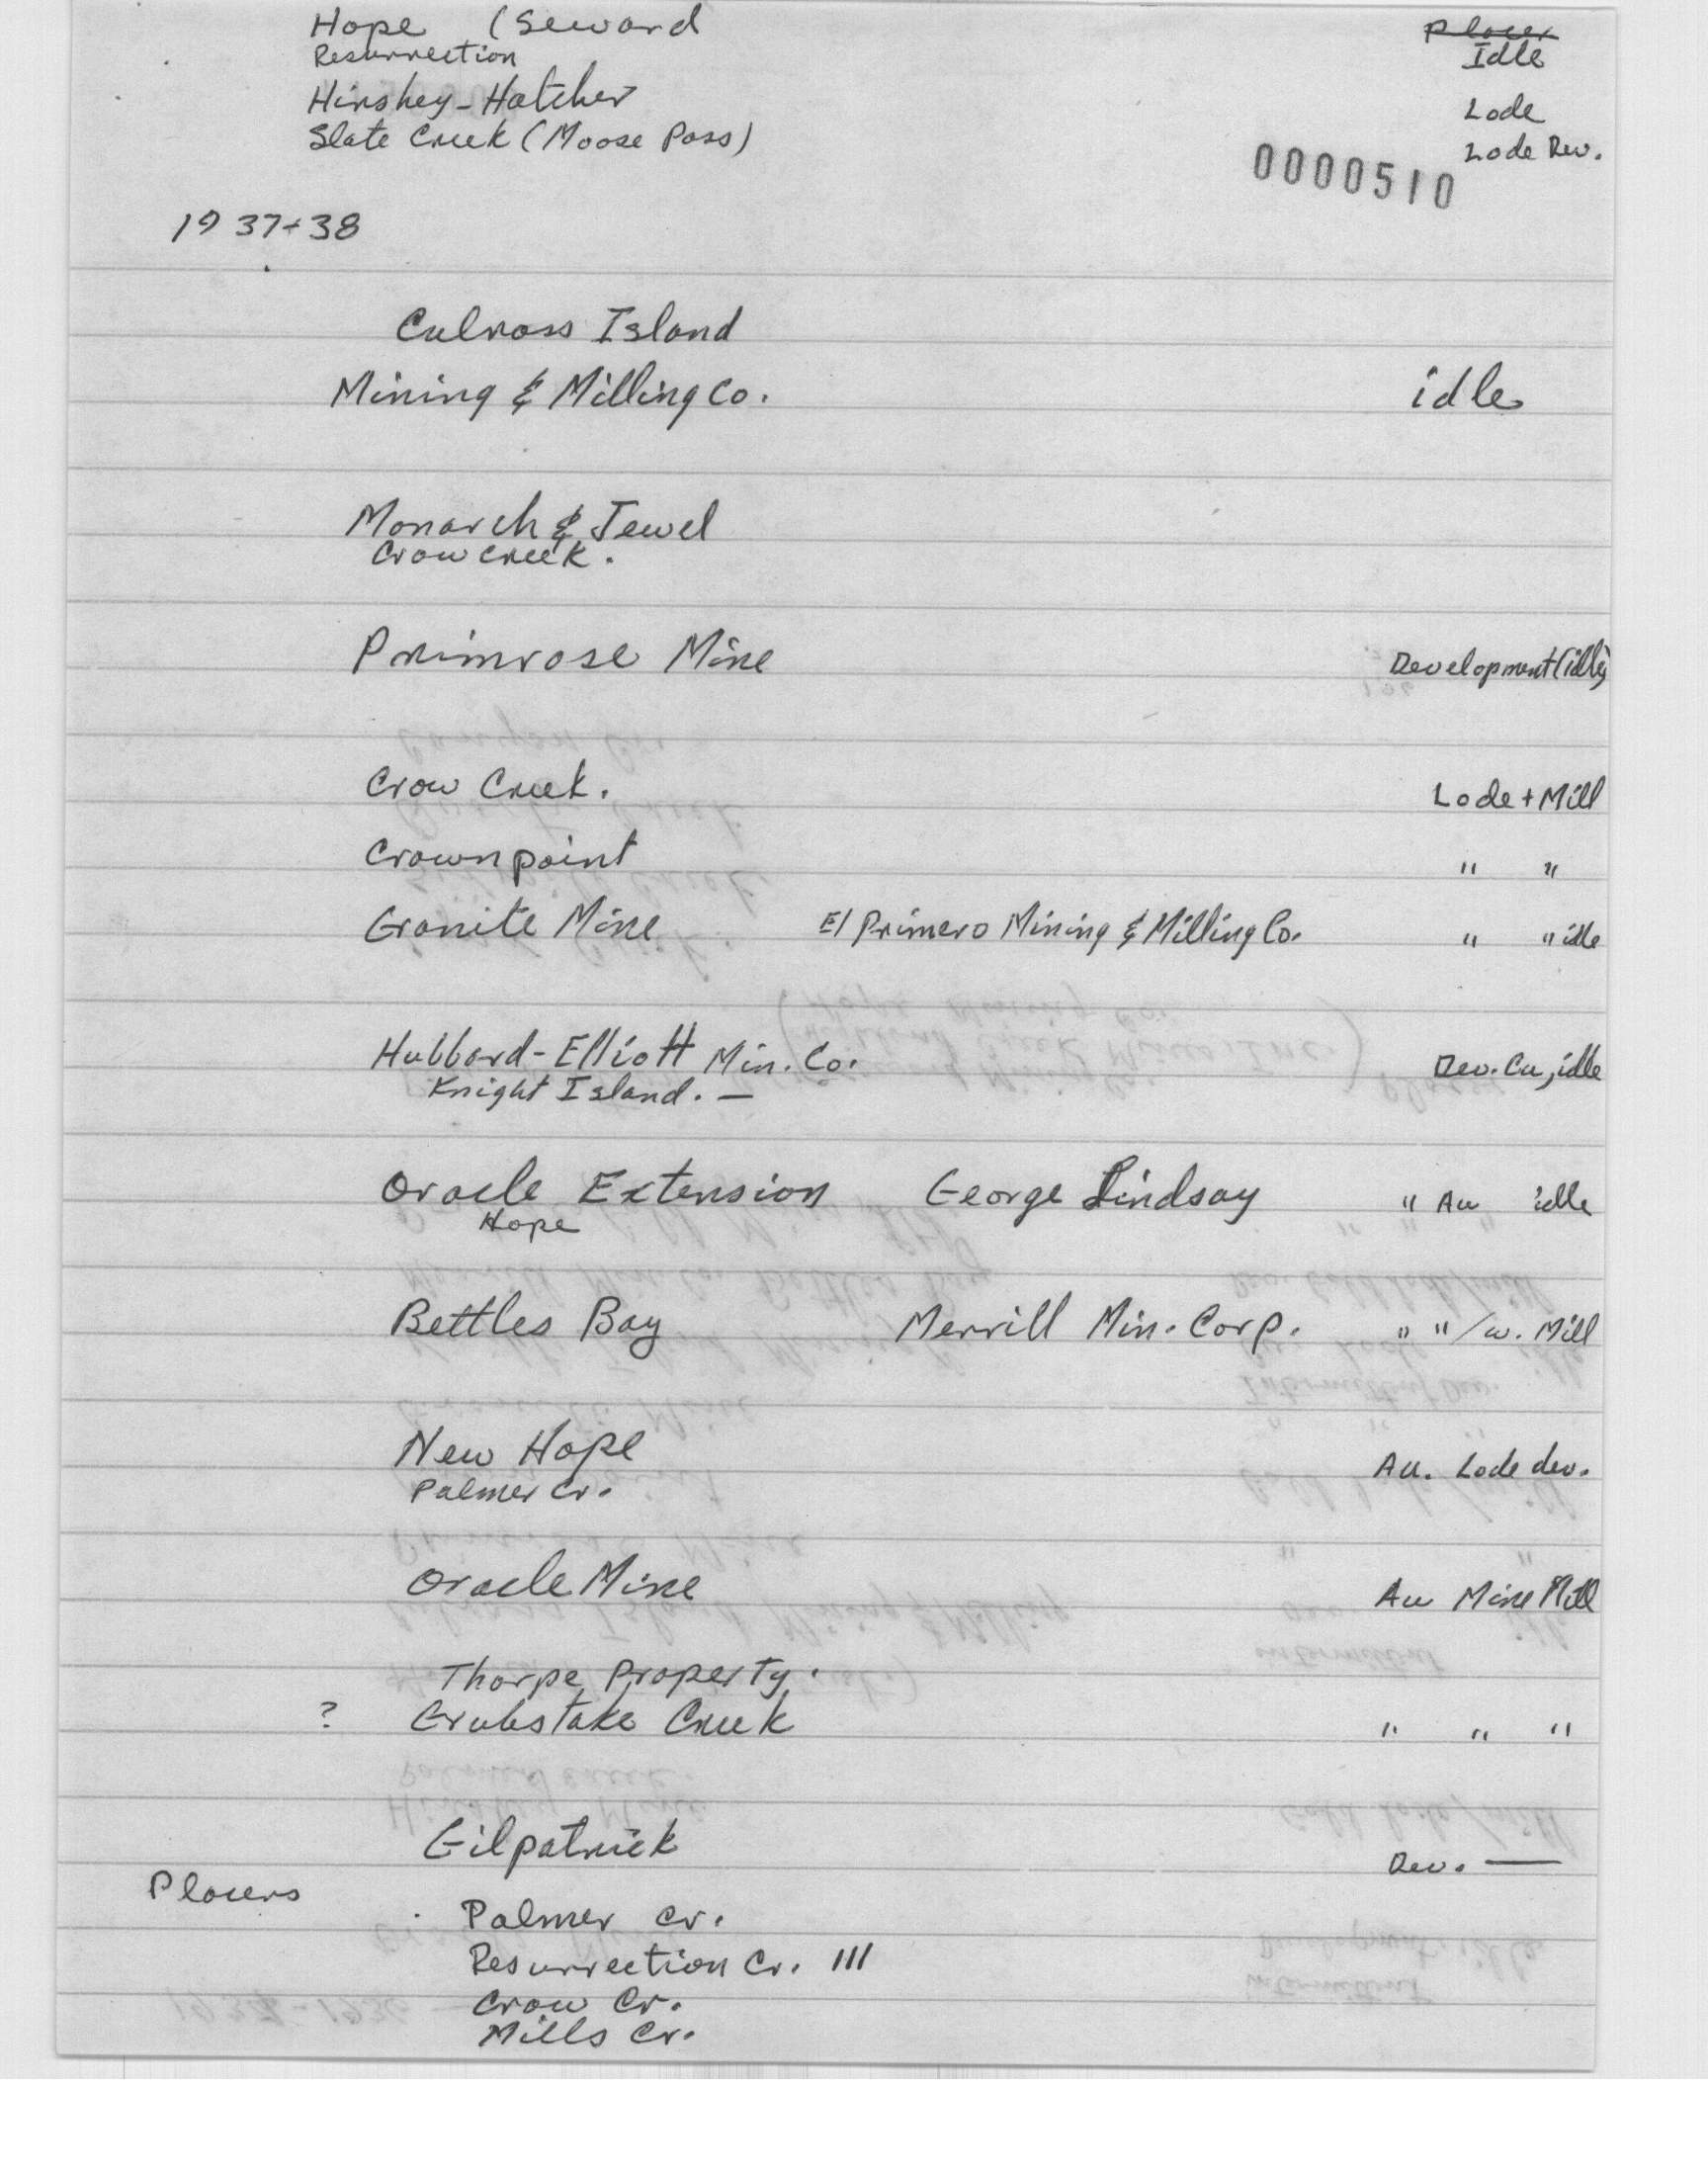 Hope (Seward Placer
Resurrection Idle
Hirshey-Hatcher Lode
Slate Creek (Moose Pass) Lode Dev.
0000510
1937+38
Culross Island
Mining & Milling Co. idle
Monarch & Jewel
Crow Creek.
Primrose Mine Development (idle)
Crow Creek. Lode + Mill
Crownpoint " "
Granite Mine El Primero Mining & Milling Co. " " idle
Hubbard-Elliott Min. Co. Dev. Cu, idle
Knight Island. —
Oracle Extension George Lindsay " Au idle
Hope
Bettles Bay Merrill Min. Corp. " " /w. Mill
New Hope Au. Lode dev.
Palmer Cr.
Oracle Mine Au Mine Mill
Thorpe Property.
? Grubstake Creek " " "
Gilpatrick Dev. —
Placers
Palmer Cr.
Resurrection Cr. III
Crow Cr.
Mills Cr.